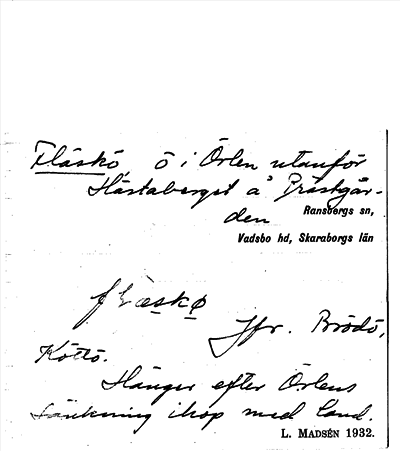 Fläskö, ö i Örlen utanför
Hästaberget å Prästgår-
den Ransbergs sn,
Vadsbo hd, Skaraborgs län
flæskø
Jfr. Brödö,
Köttö.
Hänger efter Örlens
sänkning ihop med land.
L. MADSÉN 1932.